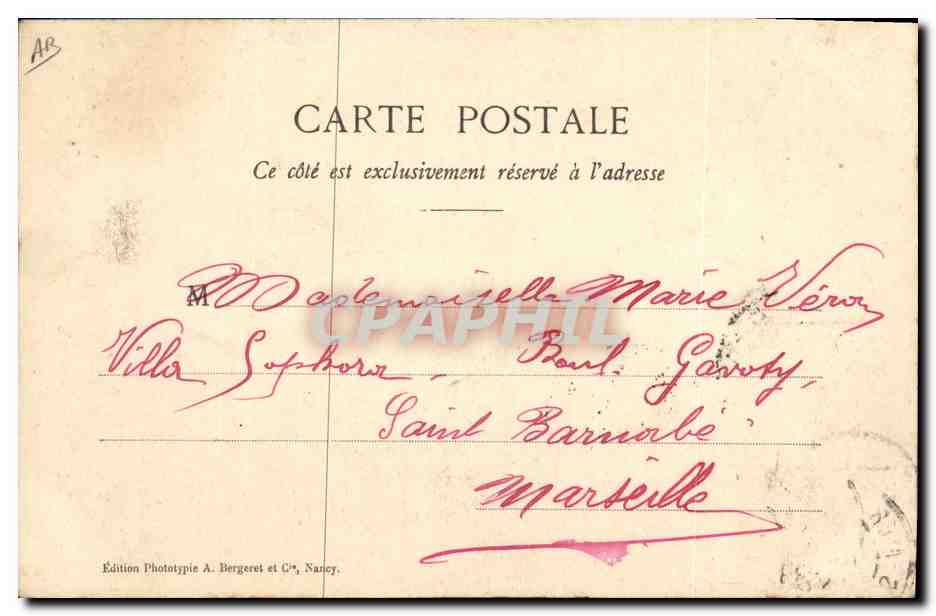 AB
CARTE POSTALE
Ce côté est exclusivement réservé à l'adresse
M
Mademoiselle Marie Véron
Villa Sophora, Boul. Gavoty,
Saint Barnabé
Marseille
CPAPHIL
Édition Phototypie A. Bergeret et Cie, Nancy.